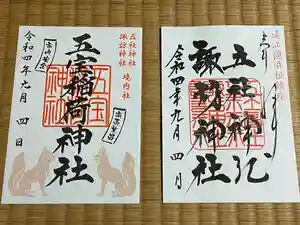 五社神社
諏訪神社 境内社
五宝稲荷神社
五宝
神社
令和四年九月四日
遠江國浜松鎮座
五社神社
諏訪神社
令和四年九月四日